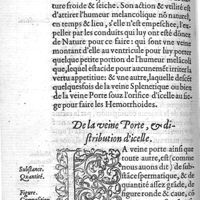 ture froide & seiche. Son action & vtilité est
d'attirer l'humeur melancolique nõ naturel,
en temps & lieu, s'elle n'est empeschée, l'ex-
pellet par les conduits qui luy ont esté donés
de Nature pour ce faire: qui sont vne veine
montant d'elle au ventricule pour luy porter
quelque petite portion de l'humeur melãcoli-
que, lequel est acide pour aucunesfois irriter la
vertu appetitiue: & vne autre, laquelle descẽd
quelquesfois de la veine Splenetique ou bien
de la veine Porte sous l'orifice d'icelle au sie-
ge pour faire les Hemorrhoides.
De la veine Porte, & di-
stribution d'icelle.
LA veine porte ainsi que
toute autre, est (comme
nous auons dit) de sub-
Substance.
stãce spermatique, & de
Quantité.
quantité assez grãde, de
Figure.
figure ronde & caue, cõ-